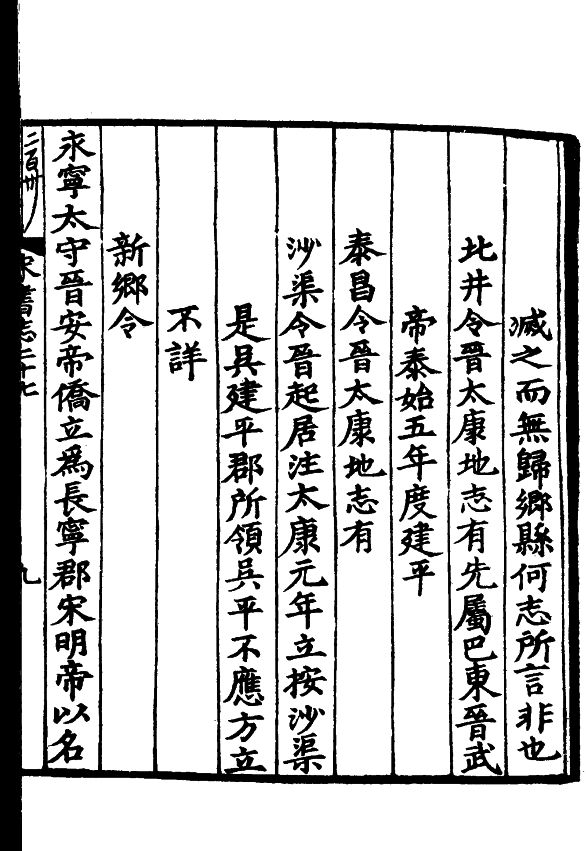 滅之而無歸鄉縣何志所言非也
北井令晉太康地志有先屬巴東晉武
帝泰始五年度建平
泰昌令晉太康地志有
沙渠令晉起居注太康元年立按沙渠
是吳建平郡所領吳平不應方立
不詳
新鄉令
永寧太守晉安帝僑立爲長寧郡宋明帝以名
二百卅
宋書志二十七
九